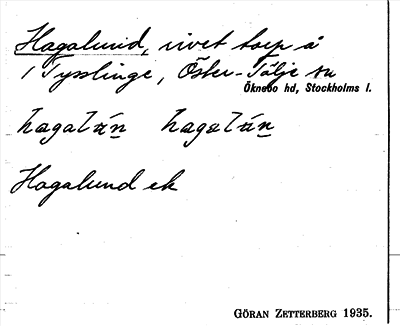 Hagalund, rivet torp å
/ Tysslinge, Öster-Tälje sn
Öknebo hd, Stockholms l.
hagalún hagalún
Hagalund ek
GÖRAN ZETTERBERG 1935.